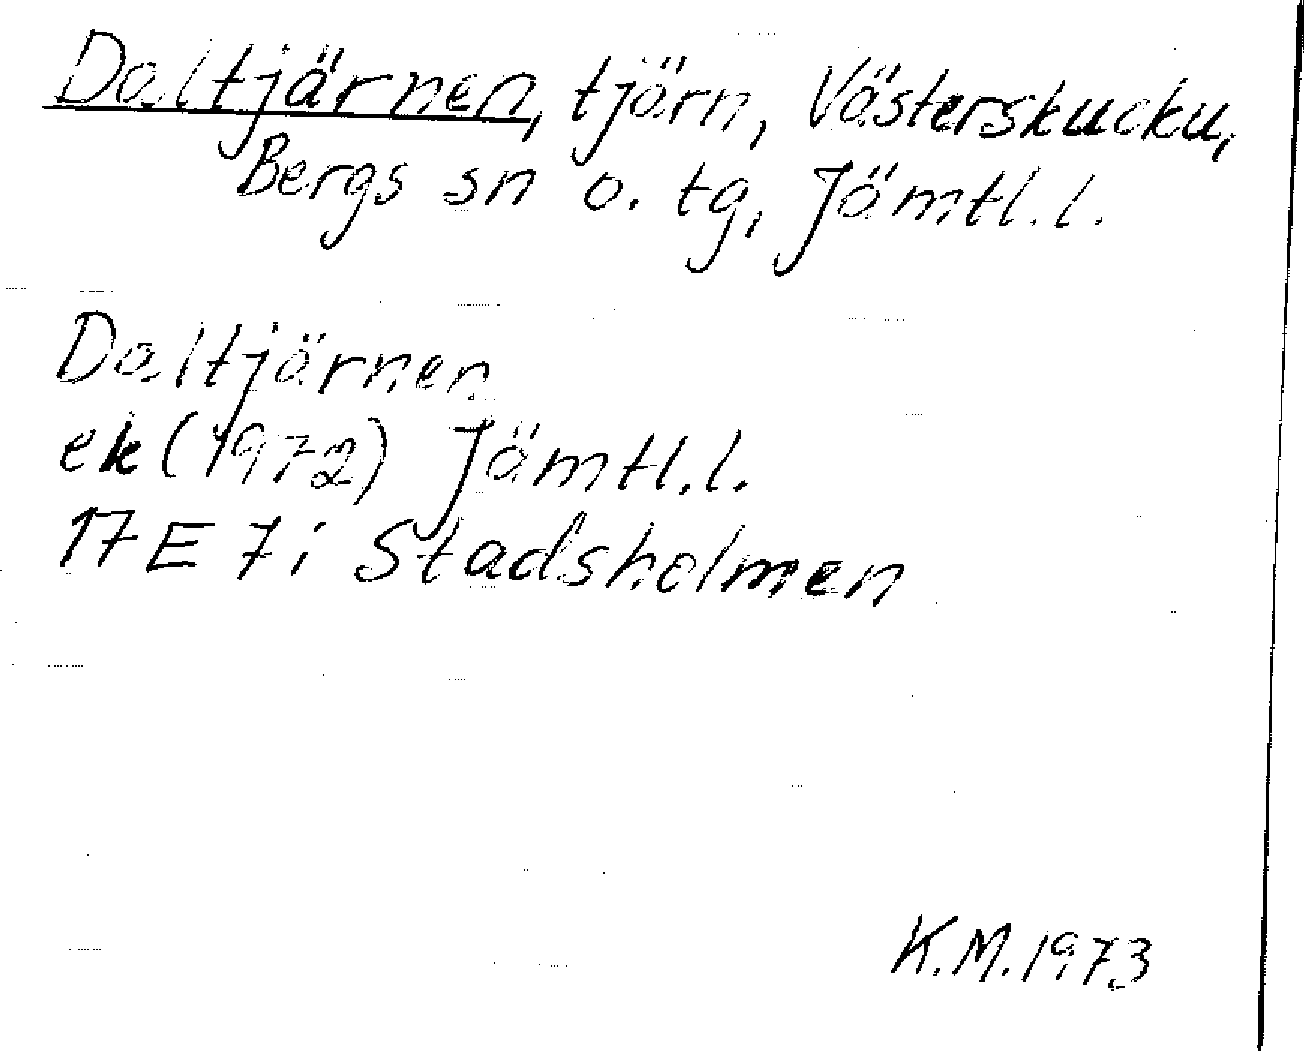 Daltjärnen, tjärn, Västerskucku,
Bergs sn o. tg, Jämtl.l.
Daltjärnen
ek (1972) Jämtl.l.
17E 7i Stadsholmen
K.M. 1973